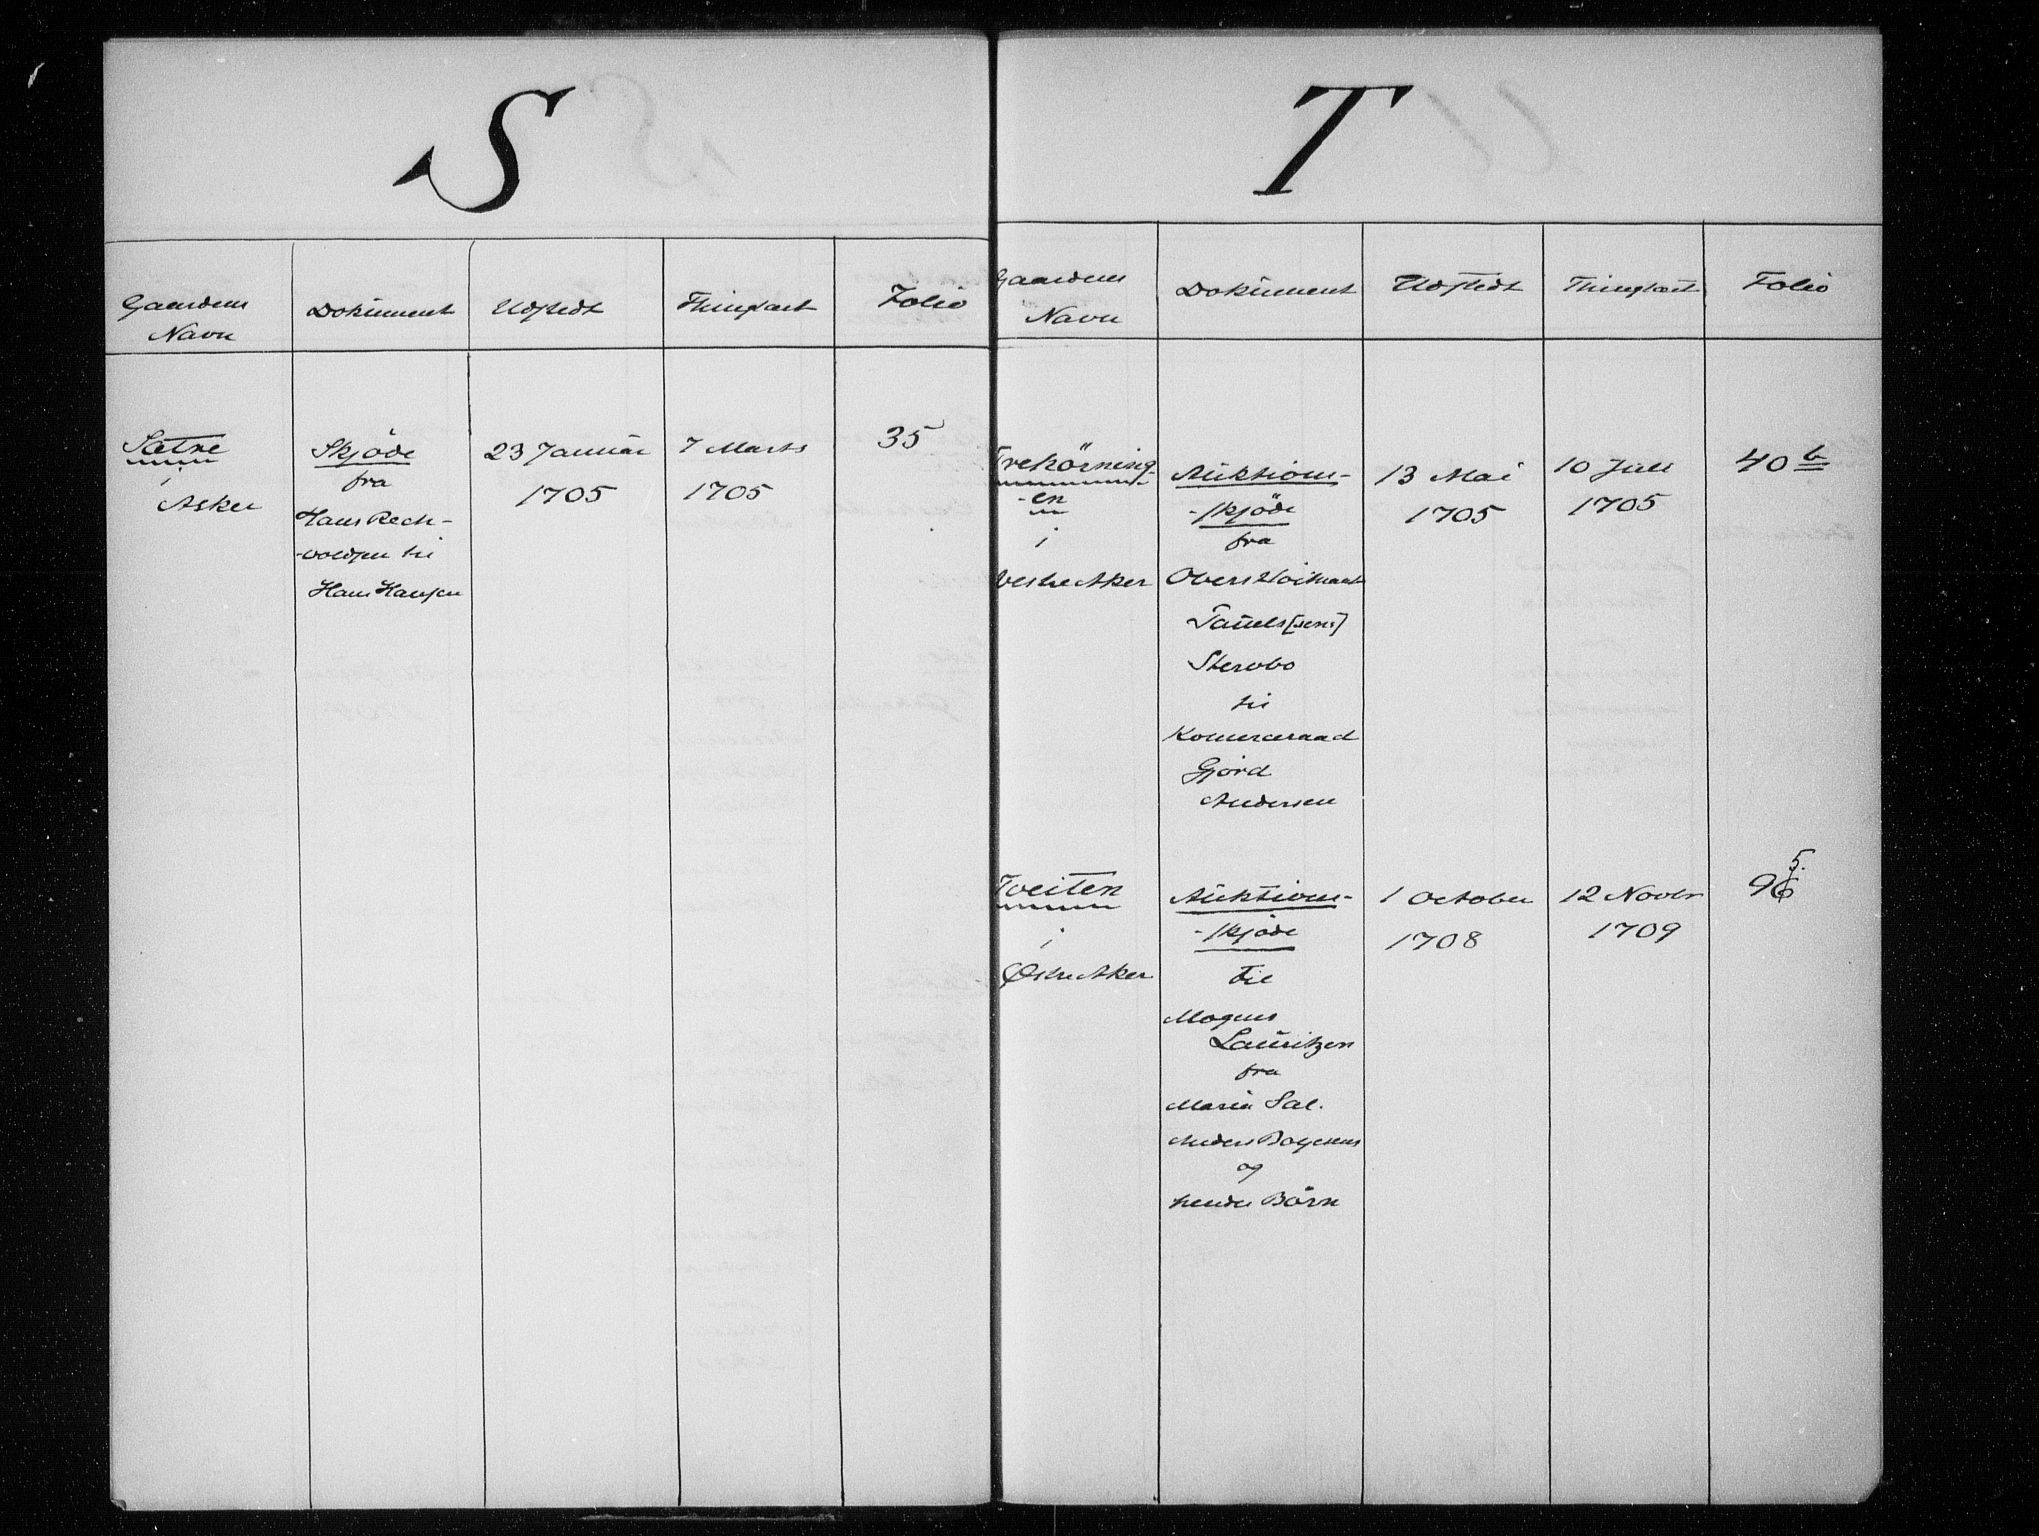 S
Gaardens
Navn
Dokument
Udstedt
Thinglæst
Folio
Sætre
i
Asker
Skjøde
fra
Hans Rech-
-voldsen til
Hans Hansen
23 Januar
1705
7 Marts
1705
35
T
Gaardens
Navn
Dokument
Udstedt
Thinglæst
Folio
Trekörning-
-en
i
Vestre Aker
Auktions-
-skjöde
fra
Oberstløitnant
Pauels[sens]
Stervbo
til
Komerceraad
Gjord
Andersen
13 Mai
1705
10 Juli
1705
40 b
Tveiten
i
Østre Aker
Auktions-
-skjöde
til
Mogens
Lauritzen
fra
Maria Sal.
Anders Boyesens
og
hendes Börn
1 October
1708
12 Novbr
1709
5.
96